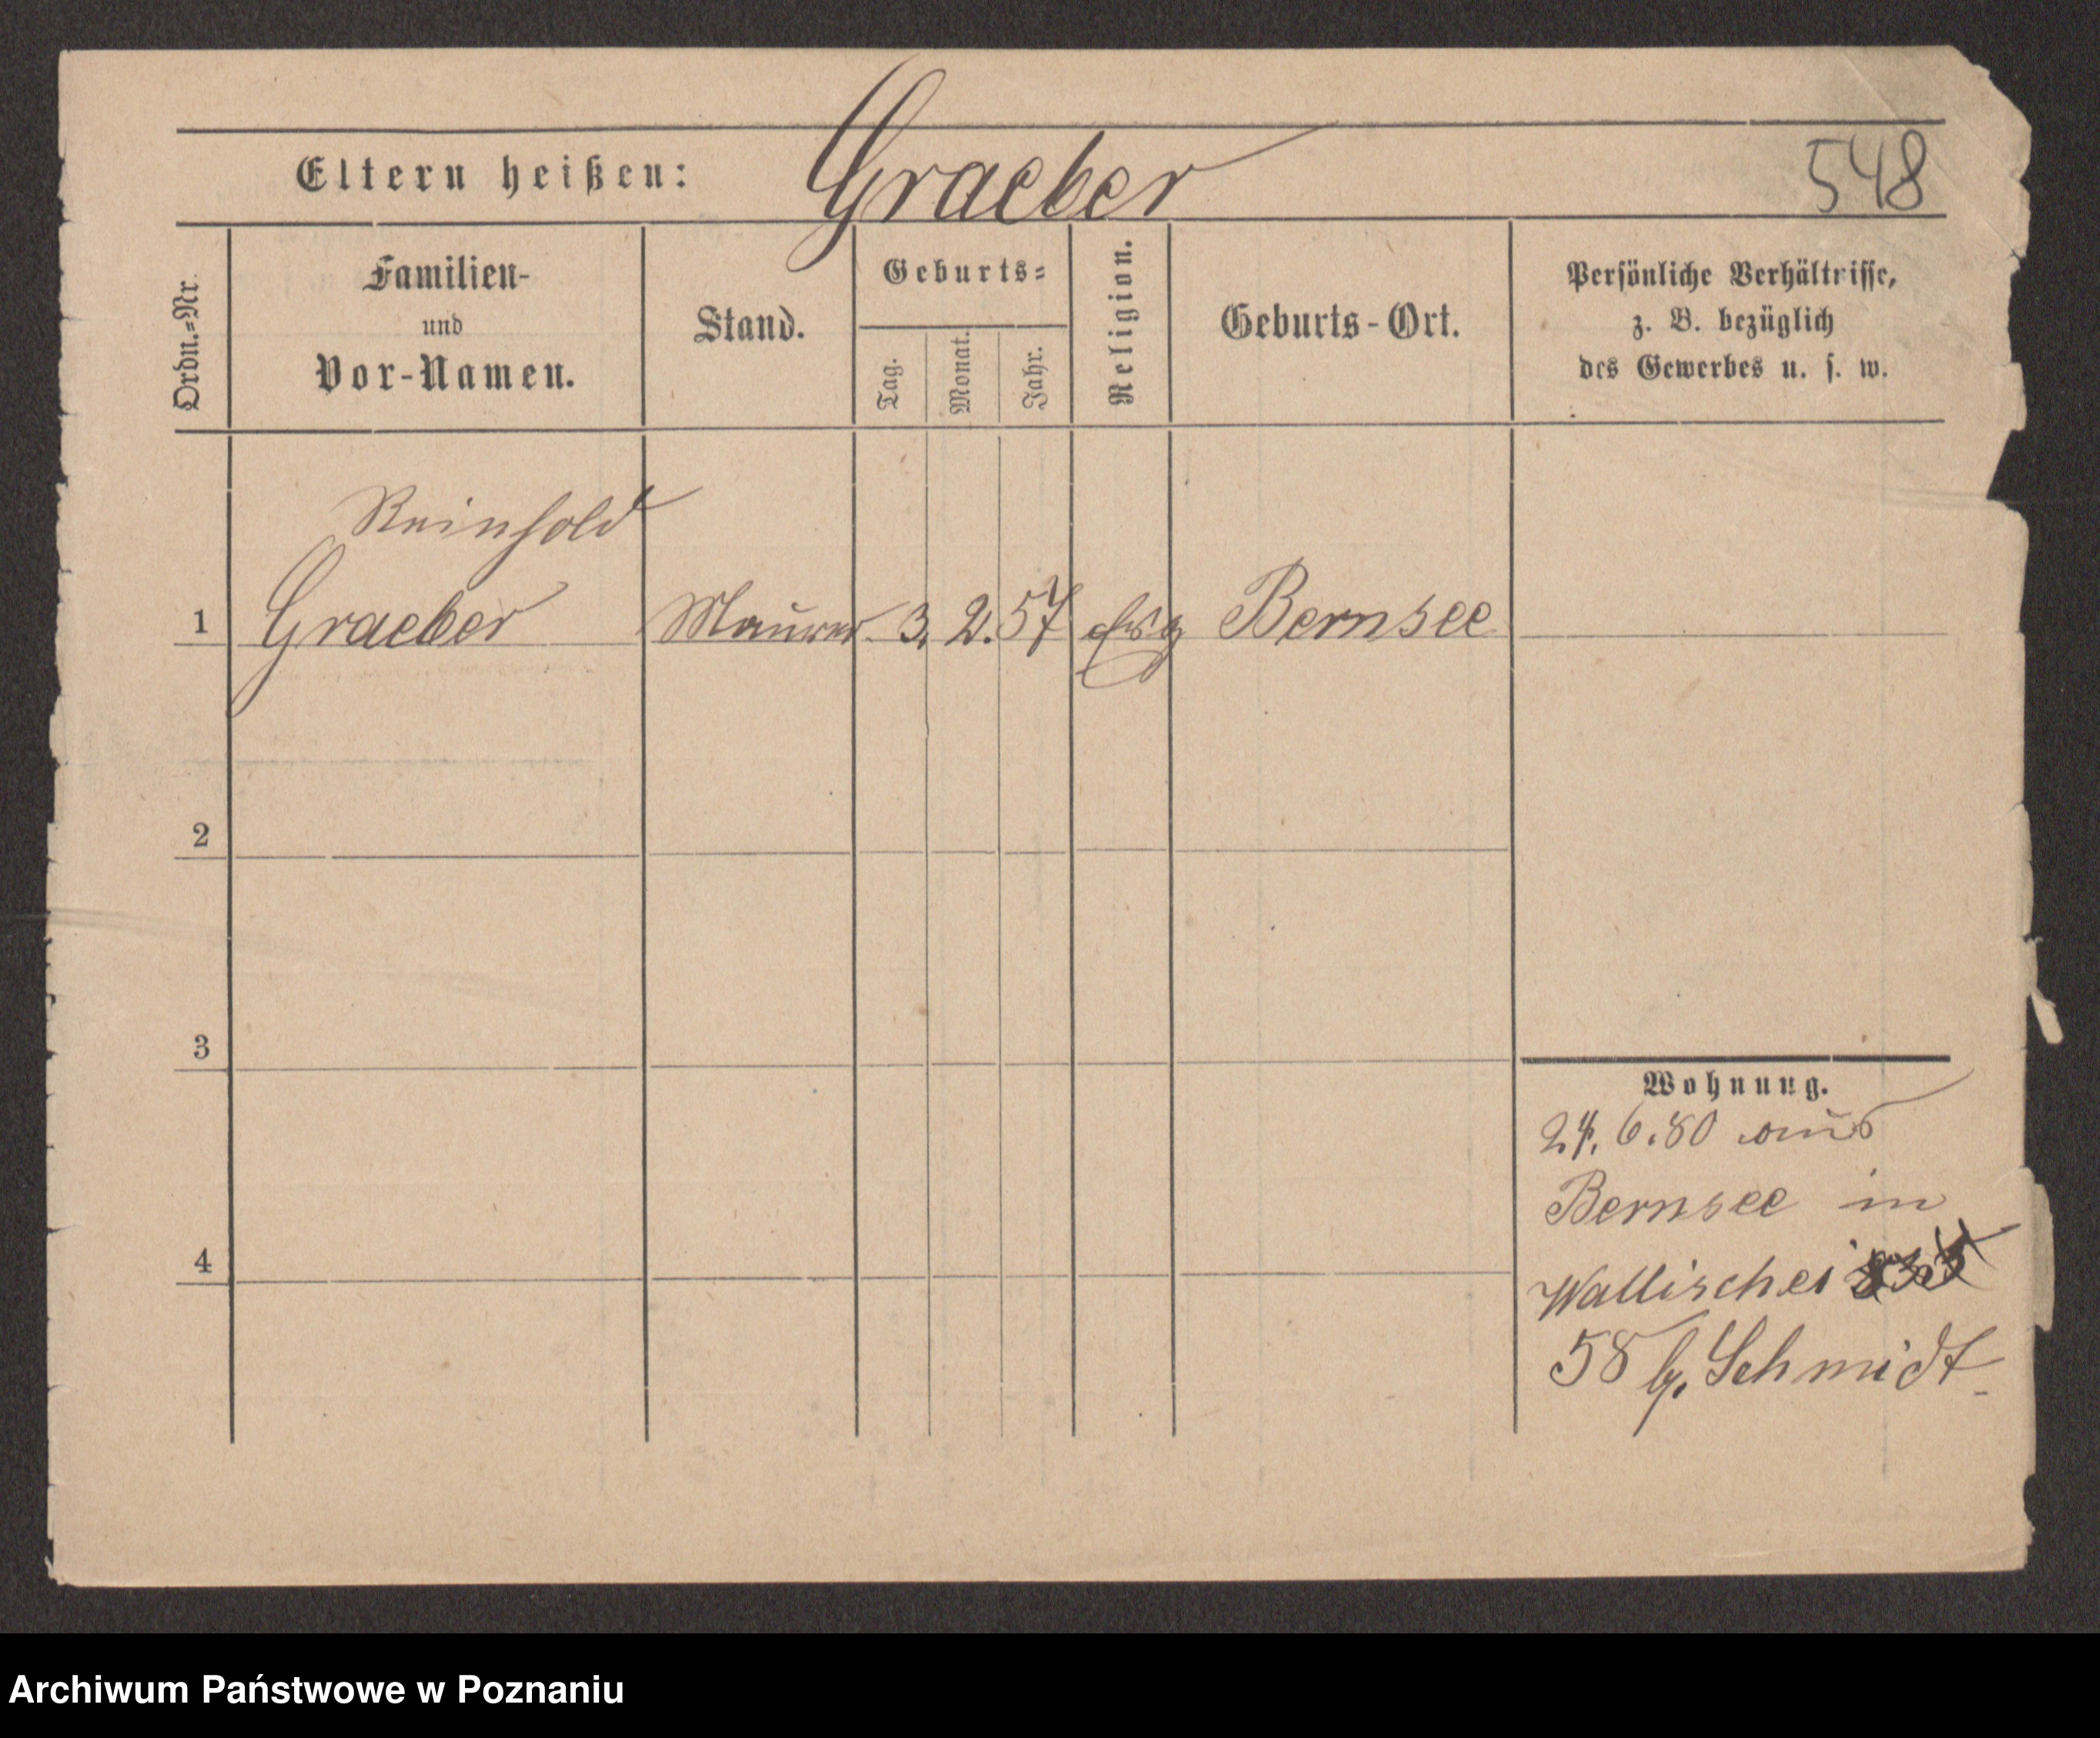 Eltern heißen: Graeber 548
Ordn.=Nr.
Familien-
und
Vor-Namen.
Stand.
Geburts=
Tag.
Monat.
Jahr.
Religion.
Geburts-Ort.
Persönliche Verhältnisse,
z. B. bezüglich
des Gewerbes u. s. w.
Reinhold
1 Graeber Maurer 3. 2. 57 evg Bernsee
2
3
4
Wohnung.
24. 6. 80 aus
Bernsee in
Wallischei
58 b. Schmidt
Archiwum Państwowe w Poznaniu